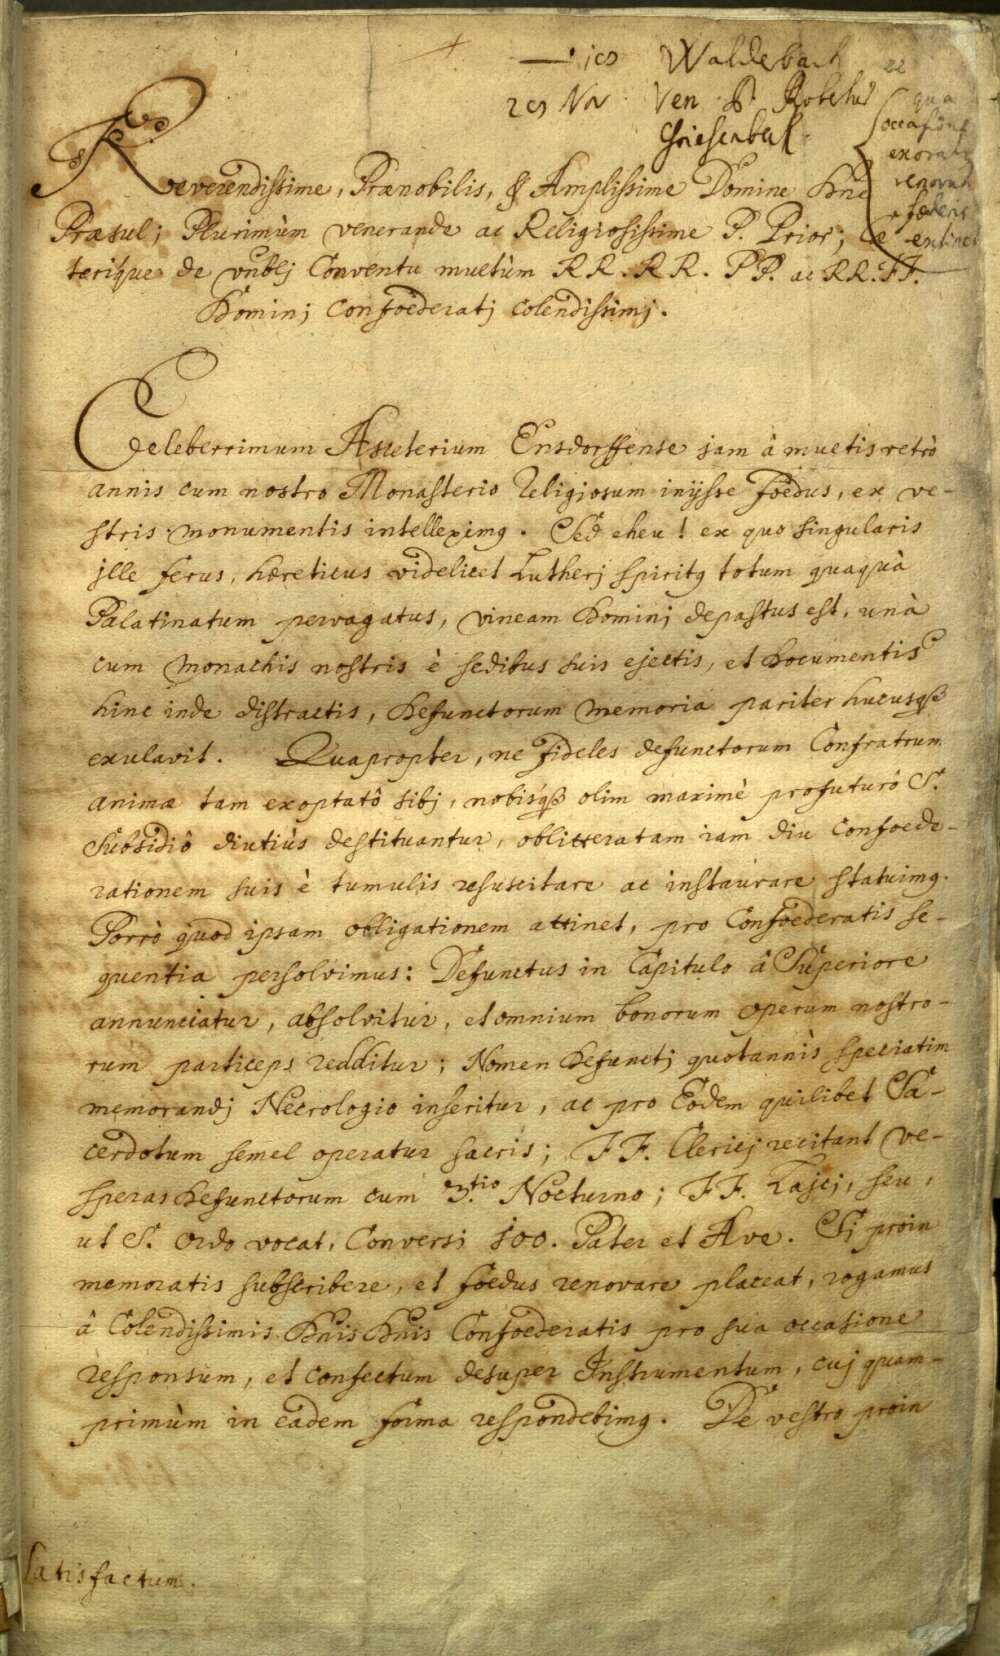 Waldebach
Ven. P. Robertus
Griesenbeck
qua
occasione
exorata
renovat
foederis
Reverendissime, Prænobilis, & Amplissime Domine Dne
Præsul; Plurimùm venerande ac Religiosissime P. Prior; Cę
teriq́ue de vnblj Conventu multùm RR. RR. PP. ac RR. FF.
Dominj Confoederatj colendissimj.
Celeberrimum Asceterium Ensdorffense jam â multis retrò
annis cum nostro Monasterio Religiosum inijsse foedus, ex ve-
stris monumentis intelleximꝰ. Sed eheu! ex quo singularis
jlle ferus, hæreticus videlicet Lutherj spiritꝰ totum quaquà
Palatinatum pervagatus, vineam Dominj depastus est, unà
cum Monachis nostris è sedibus suis ejectis, et Documentis
hinc inde distractis, Defunctorum memoria pariter hucusqꝫ
exulavit. Quapropter, ne fideles defunctorum Confratrum
animæ tam exoptatô sibj, nobisqꝫ olim maximè profuturô S.
Subsidiô diutiùs destituantur, oblitteratam iam diu Confoede-
rationem suis è tumulis resuscitare ac instaurare statuimꝰ.
Porrò quod ipsam obligationem attinet, pro Confoederatis se-
quentia persolvimus: Defunctus in Capitulo â Superiore
annunciatur, absolvitur, et omnium bonorum operum nostro-
rum particeps redditur; Nomen Defunctj quotannis speciatim
memorandj Necrologio inseritur, ac pro Eodem quilibet Sa-
cerdotum semel operatur sacris; FF. Clericj recitant Ve-
speras Defunctorum cum 3.tio Nocturno; FF. Lajcj, seu,
ut S. Ordo vocat, Conversj 100. Pater et Ave. Sj proin
memoratis subscribere, et foedus renovare placeat, rogamus
â Colendissimis Dnis Dnis Confoederatis pro sua occasione
responsum, et confectum desuper Instrumentum, cuj quam-
primùm in eâdem forma respondebimꝰ. De vestro proin
Satisfactum.